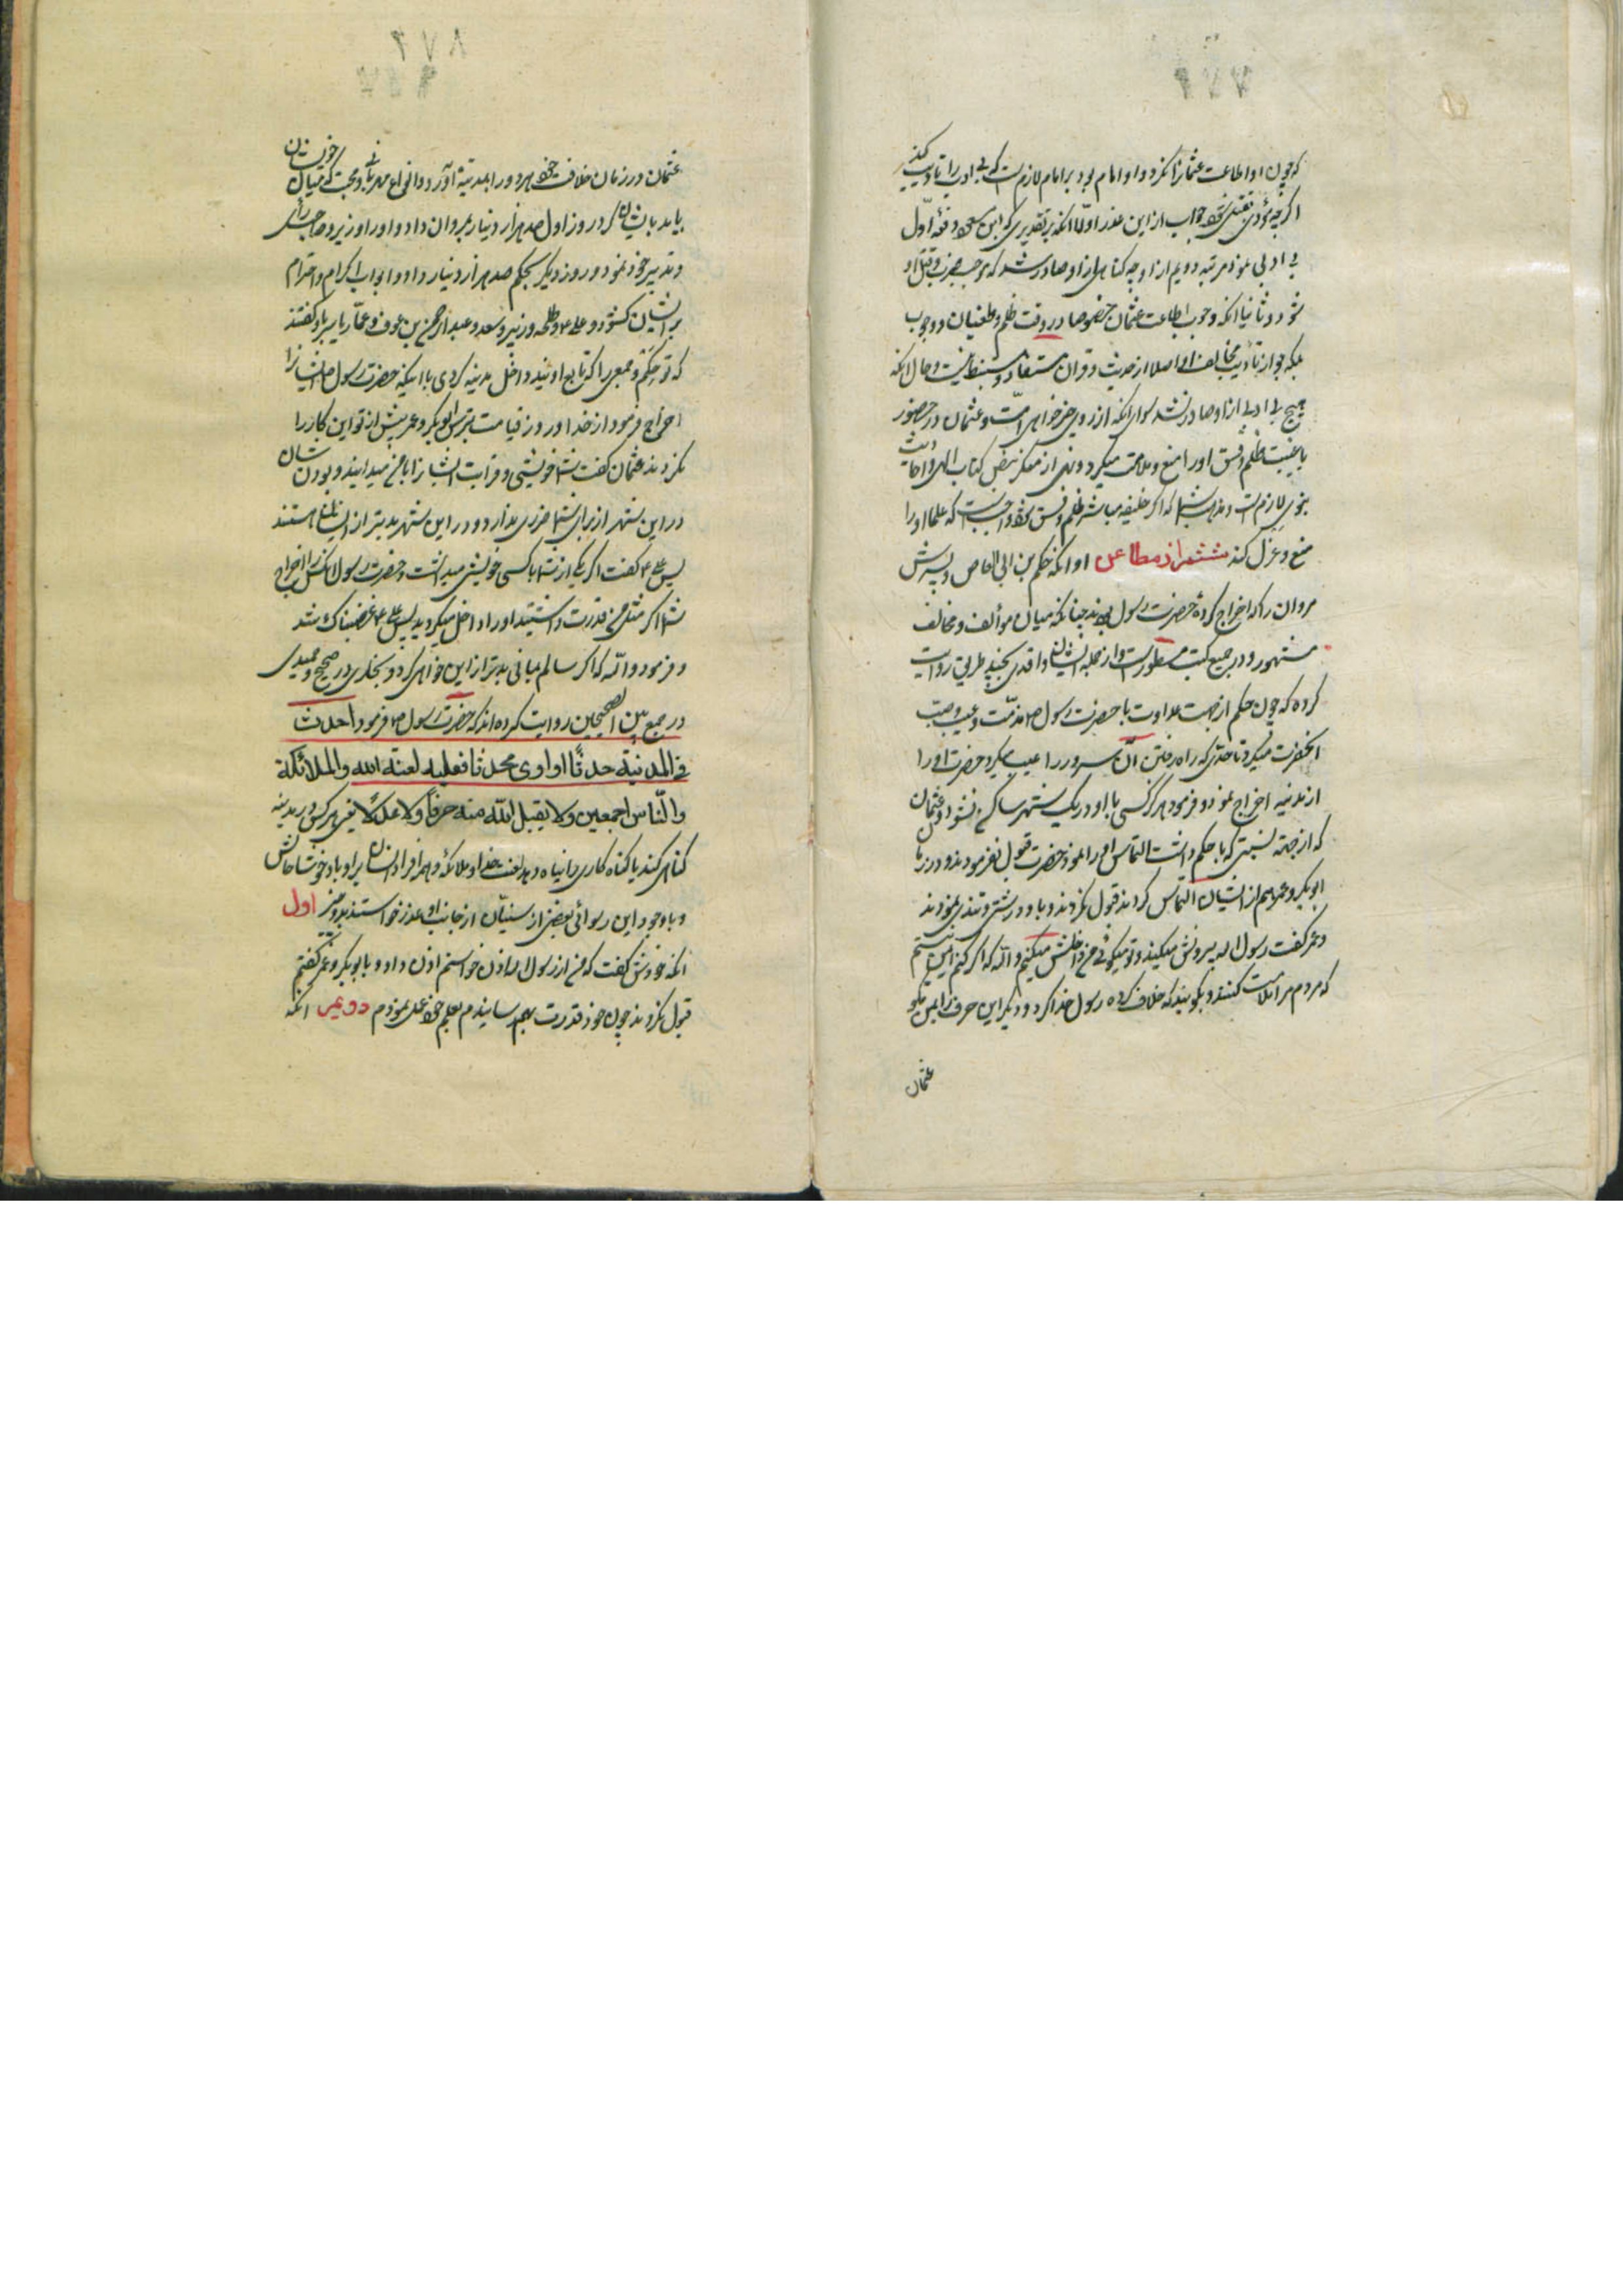 که چون او اطاعت عثمان نکرد و او امام بود بر امام لازم است که بی ادب را تادیب کند
اگرچه مؤدی بقتل شود جواب از این عذر اولا آنکه بر تقدیری که ابن مسعود دفعه اول
بی ادبی نمود مرتبه دویم از او چه گناهی از او صادر شد که موجب ضرب و قتل او
شود و ثانیا آنکه وجوب اطاعت عثمان خصوصا در وقت ظلم و طغیان و وجوب
بلکه جواز تأدیب مخالف او اصلا از حدیث و قران مستفاد و مستنبط نیست و حال آنکه
هیچ بی ادبی از او صادر نشد سوای آنکه از روی خیرخواهی امت و عثمان در حضور
یا غیبت ظلم و فسق او را منع و ملامت میکرد و نهی از منکر بنص کتاب الهی و احادیث
نبوی لازم است و مذهب شما که اگر خلیفه مباشر ظلم و فسق شود واجب است که علما او را
منع و عزل کنند ششم از مطاعن او آنکه حکم بن ابی العاص و پسرش
مروان را که اخراج کرده حضرت رسول بودند چنانکه میان مؤالف و مخالف
مشهور و در جمیع کتب مسطور است و از جمله ایشان واقدی بچند طریق روایت
کرده که چون حکم از جهت عداوت با حضرت رسول ص مذمت و عیب
آنحضرت میکرد تا حدی که راه رفتن آن سرور را عیب میکرد حضرت او را
از مدینه اخراج نمود و فرمود هرگز کسی با او در یک شهر ساکن نشود و عثمان
که از جهة نسبتی که با حکم داشت التماس او را نمود حضرت قبول نفرمودند و در زمان
ابوبکر و عمر هم از ایشان التماس کرد ایشان قبول نکردند و با او درشتی و تندی نمودند
و عمر گفت رسول الله بیرونش میکند و تو میگوئی من داخلش میکنم والله که اگر کنم ایمن نیستم
که مردم مرا ملامت کنند و بگویند که خلاف کرده رسول خدا کرد و دیگر این حرف را بمن مگو
عثمان
عثمان در زمان خلافت خود هر دو را بمدینه آورد و انواع مهربانی و محبت که میان خویشان
باید بایشان کرد روز اول صد هزار دینار بمروان داد و او را وزیر و صاحب رأی
و تدبیر خود نمود و روز دیگر بحکم صد هزار دینار داد و ابواب اکرام و احترام
بر ایشان گشود و علی ع و طلحه و زبیر و سعد و عبدالرحمن بن عوف و عمار یاسر باو گفتند
که تو حکم و جمعی را که تابع اویند داخل مدینه کردی با اینکه حضرت رسول ص ایشان را
اخراج فرمود از خدا و روز قیامت بترس ابوبکر و عمر پیش از تو این کار را
نکردند عثمان گفت شما خویشی و قرابت ایشان را با من میدانید و بودن شان
در این شهر از برای شما ضرری ندارد و در این شهر بدتر از ایشان هستند
پس علی ع گفت اگر یکی از شما با کسی خویشی میداشت و حضرت رسول آنکس را اخراج
شما اگر مثل من قدرت داشتید او را داخل میکردید پس علی ع غضبناک شد
و فرمود والله که اگر سالم بمانی بدتر از این خواهی کرد و بخاری در صحیح و حمیدی
در جمع بین الصحیحین روایت کرده اند که حضرت رسول ص فرمود من احدث
فی المدینة حدثا او اوی محدثا فعلیه لعنة الله والملائکة
والناس اجمعین ولا یقبل الله منه صرفا ولا عدلا یعنی هر کس در مدینه
گناهی کند یا گناه کاری را پناه دهد لعنت خدا و ملائکه و همه افراد انسان بر او باد خوشا حالش
و با وجود این رسوائی بعضی از سنیان از جانب او عذر خواستند بدو چیز اول
آنکه خودش گفت که من از رسول الله اذن خواستم اذن داد و با ابوبکر و عمر گفتم
قبول نکردند چون خود قدرت بهم رسانیدم بعلم خود عمل نمودم دویم آنکه